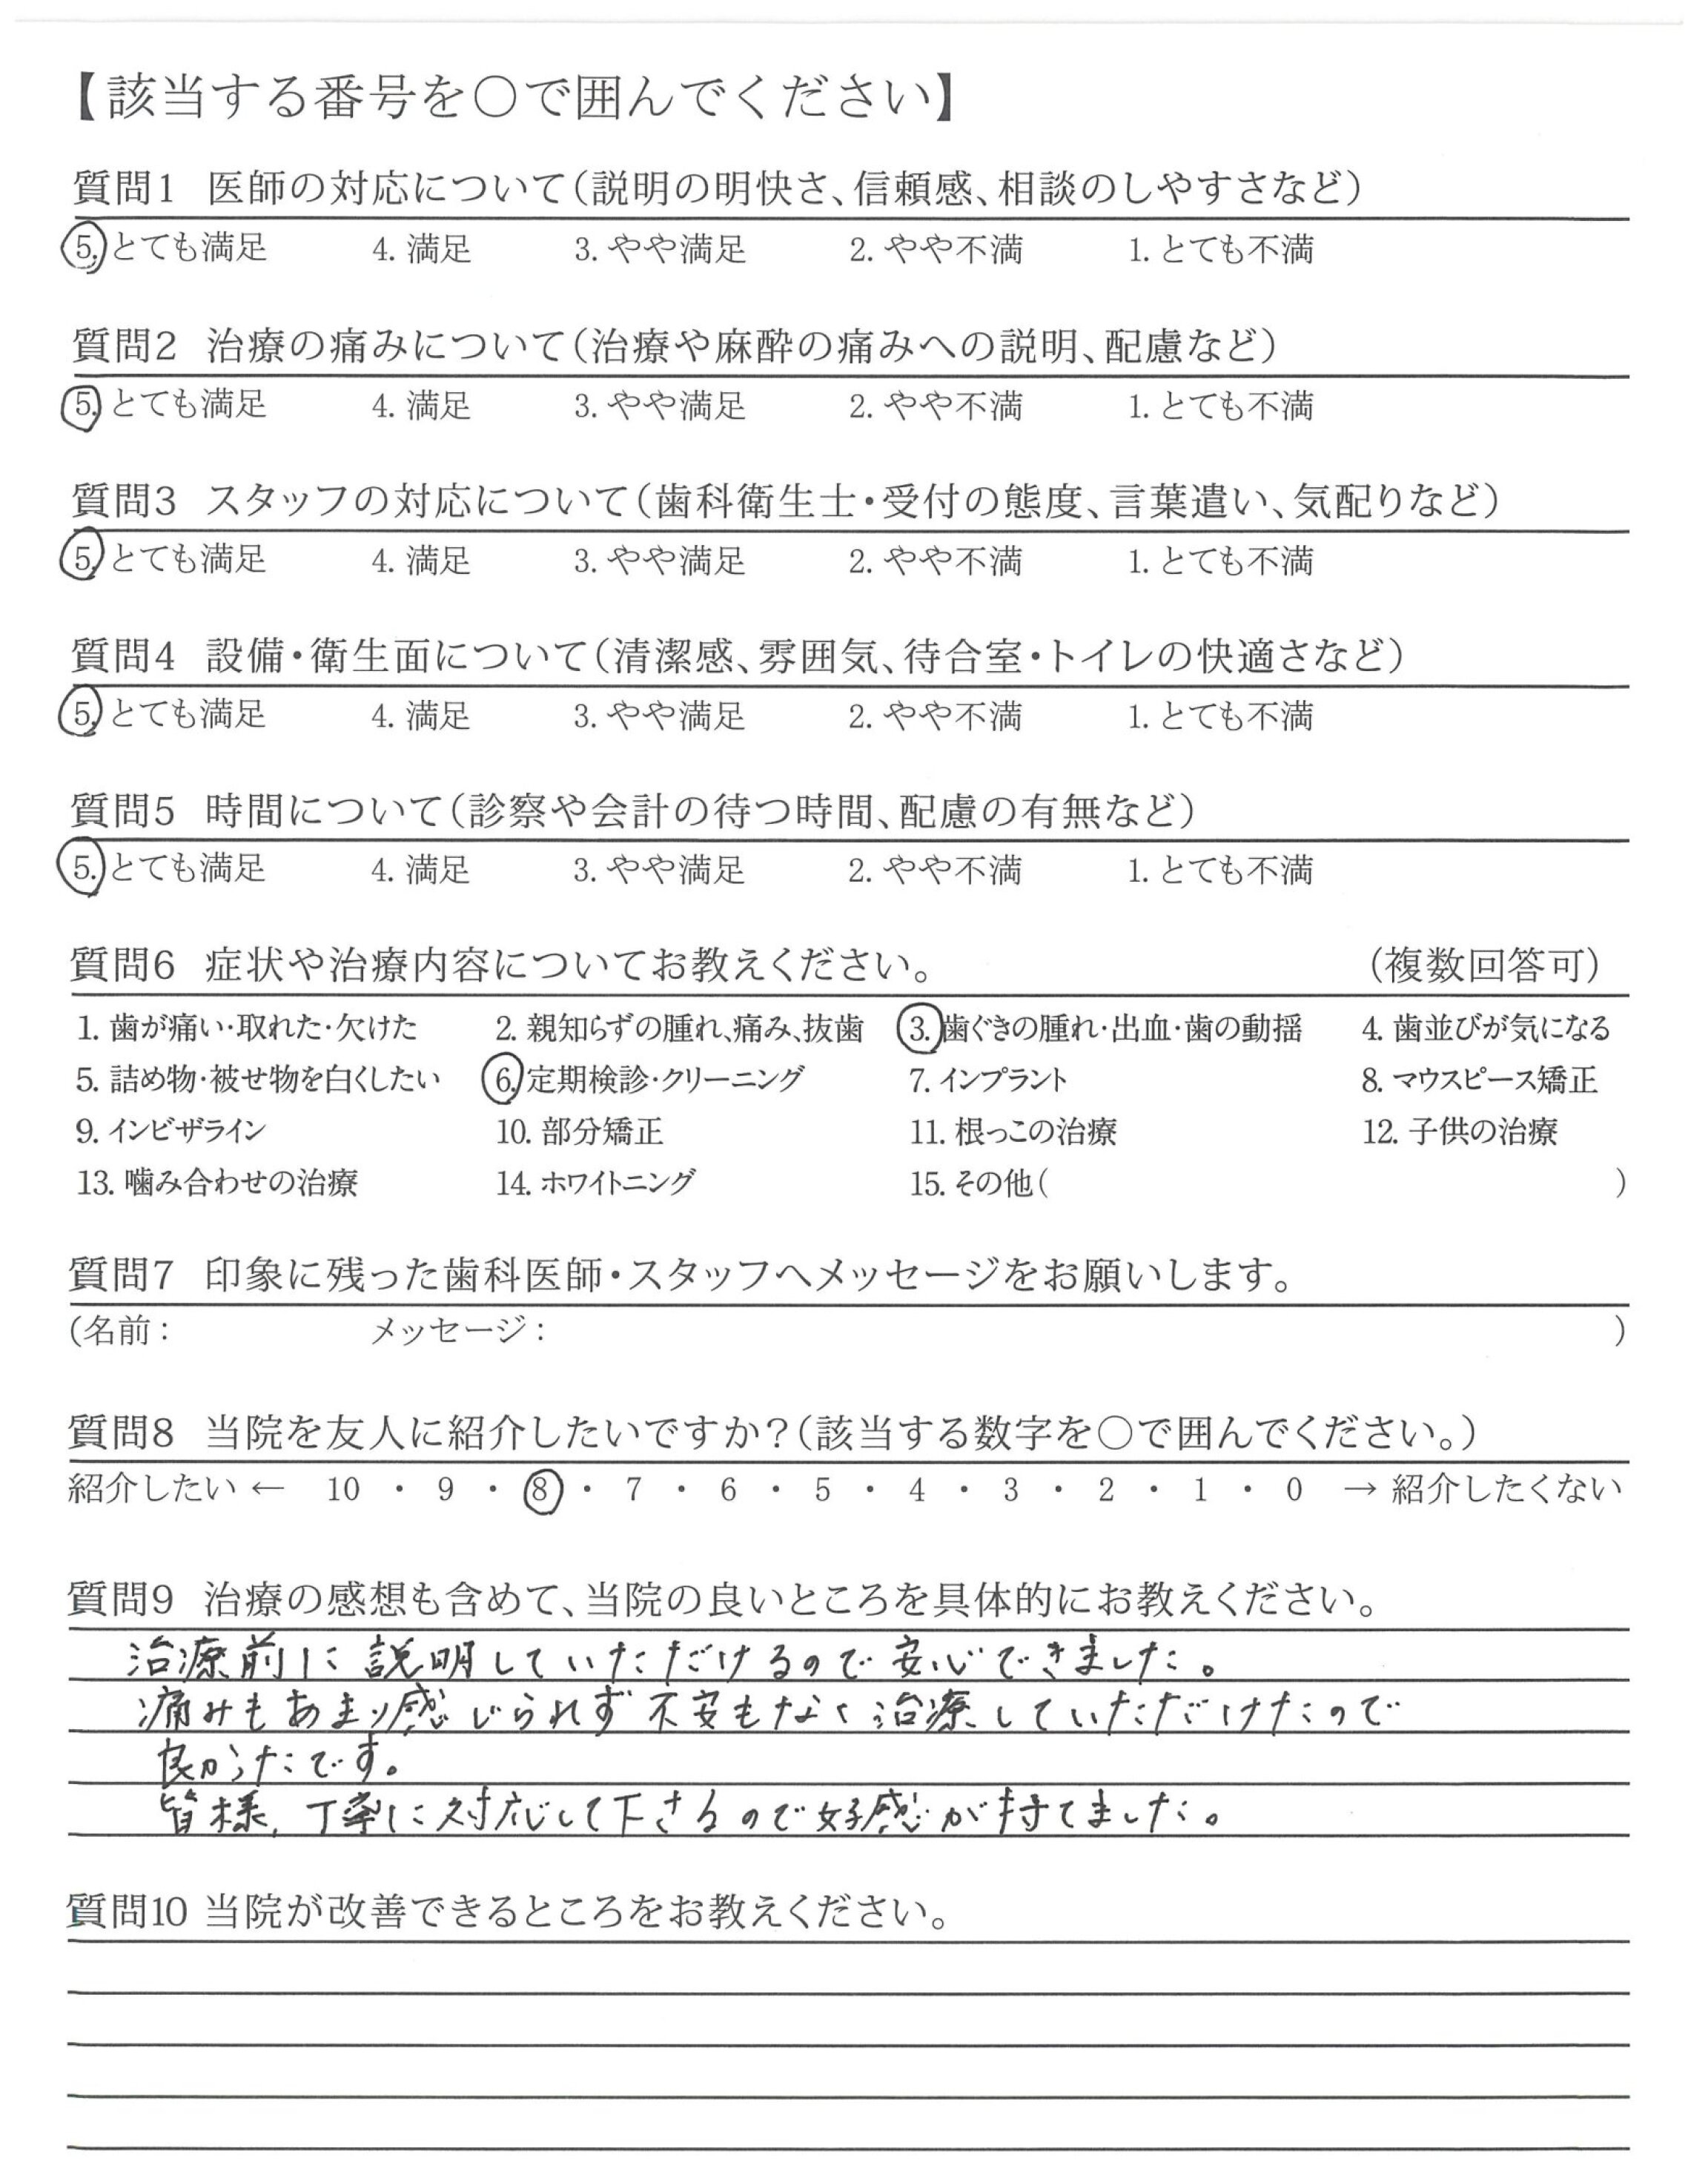 【該当する番号を〇で囲んでください】
質問1 医師の対応について(説明の明快さ、信頼感、相談のしやすさなど)
5. とても満足 4. 満足 3. やや満足 2. やや不満 1. とても不満
質問2 治療の痛みについて(治療や麻酔の痛みへの説明、配慮など)
5. とても満足 4. 満足 3. やや満足 2. やや不満 1. とても不満
質問3 スタッフの対応について(歯科衛生士・受付の態度、言葉遣い、気配りなど)
5. とても満足 4. 満足 3. やや満足 2. やや不満 1. とても不満
質問4 設備・衛生面について(清潔感、雰囲気、待合室・トイレの快適さなど)
5. とても満足 4. 満足 3. やや満足 2. やや不満 1. とても不満
質問5 時間について(診察や会計の待つ時間、配慮の有無など)
5. とても満足 4. 満足 3. やや満足 2. やや不満 1. とても不満
質問6 症状や治療内容についてお教えください。 (複数回答可)
1. 歯が痛い・取れた・欠けた 2. 親知らずの腫れ、痛み、抜歯 3. 歯ぐきの腫れ・出血・歯の動揺 4. 歯並びが気になる
5. 詰め物・被せ物を白くしたい 6. 定期検診・クリーニング 7. インプラント 8. マウスピース矯正
9. インビザライン 10. 部分矯正 11. 根っこの治療 12. 子供の治療
13. 噛み合わせの治療 14. ホワイトニング 15. その他( )
質問7 印象に残った歯科医師・スタッフへメッセージをお願いします。
(名前: メッセージ: )
質問8 当院を友人に紹介したいですか?(該当する数字を〇で囲んでください。)
紹介したい ← 10 ・ 9 ・ 8 ・ 7 ・ 6 ・ 5 ・ 4 ・ 3 ・ 2 ・ 1 ・ 0 → 紹介したくない
質問9 治療の感想も含めて、当院の良いところを具体的にお教えください。
治療前に説明していただけるので安心できました。
痛みもあまり感じられず不安もなく治療していただけたので
良かったです。
皆様、丁寧に対応して下さるので好感が持てました。
質問10 当院が改善できるところをお教えください。